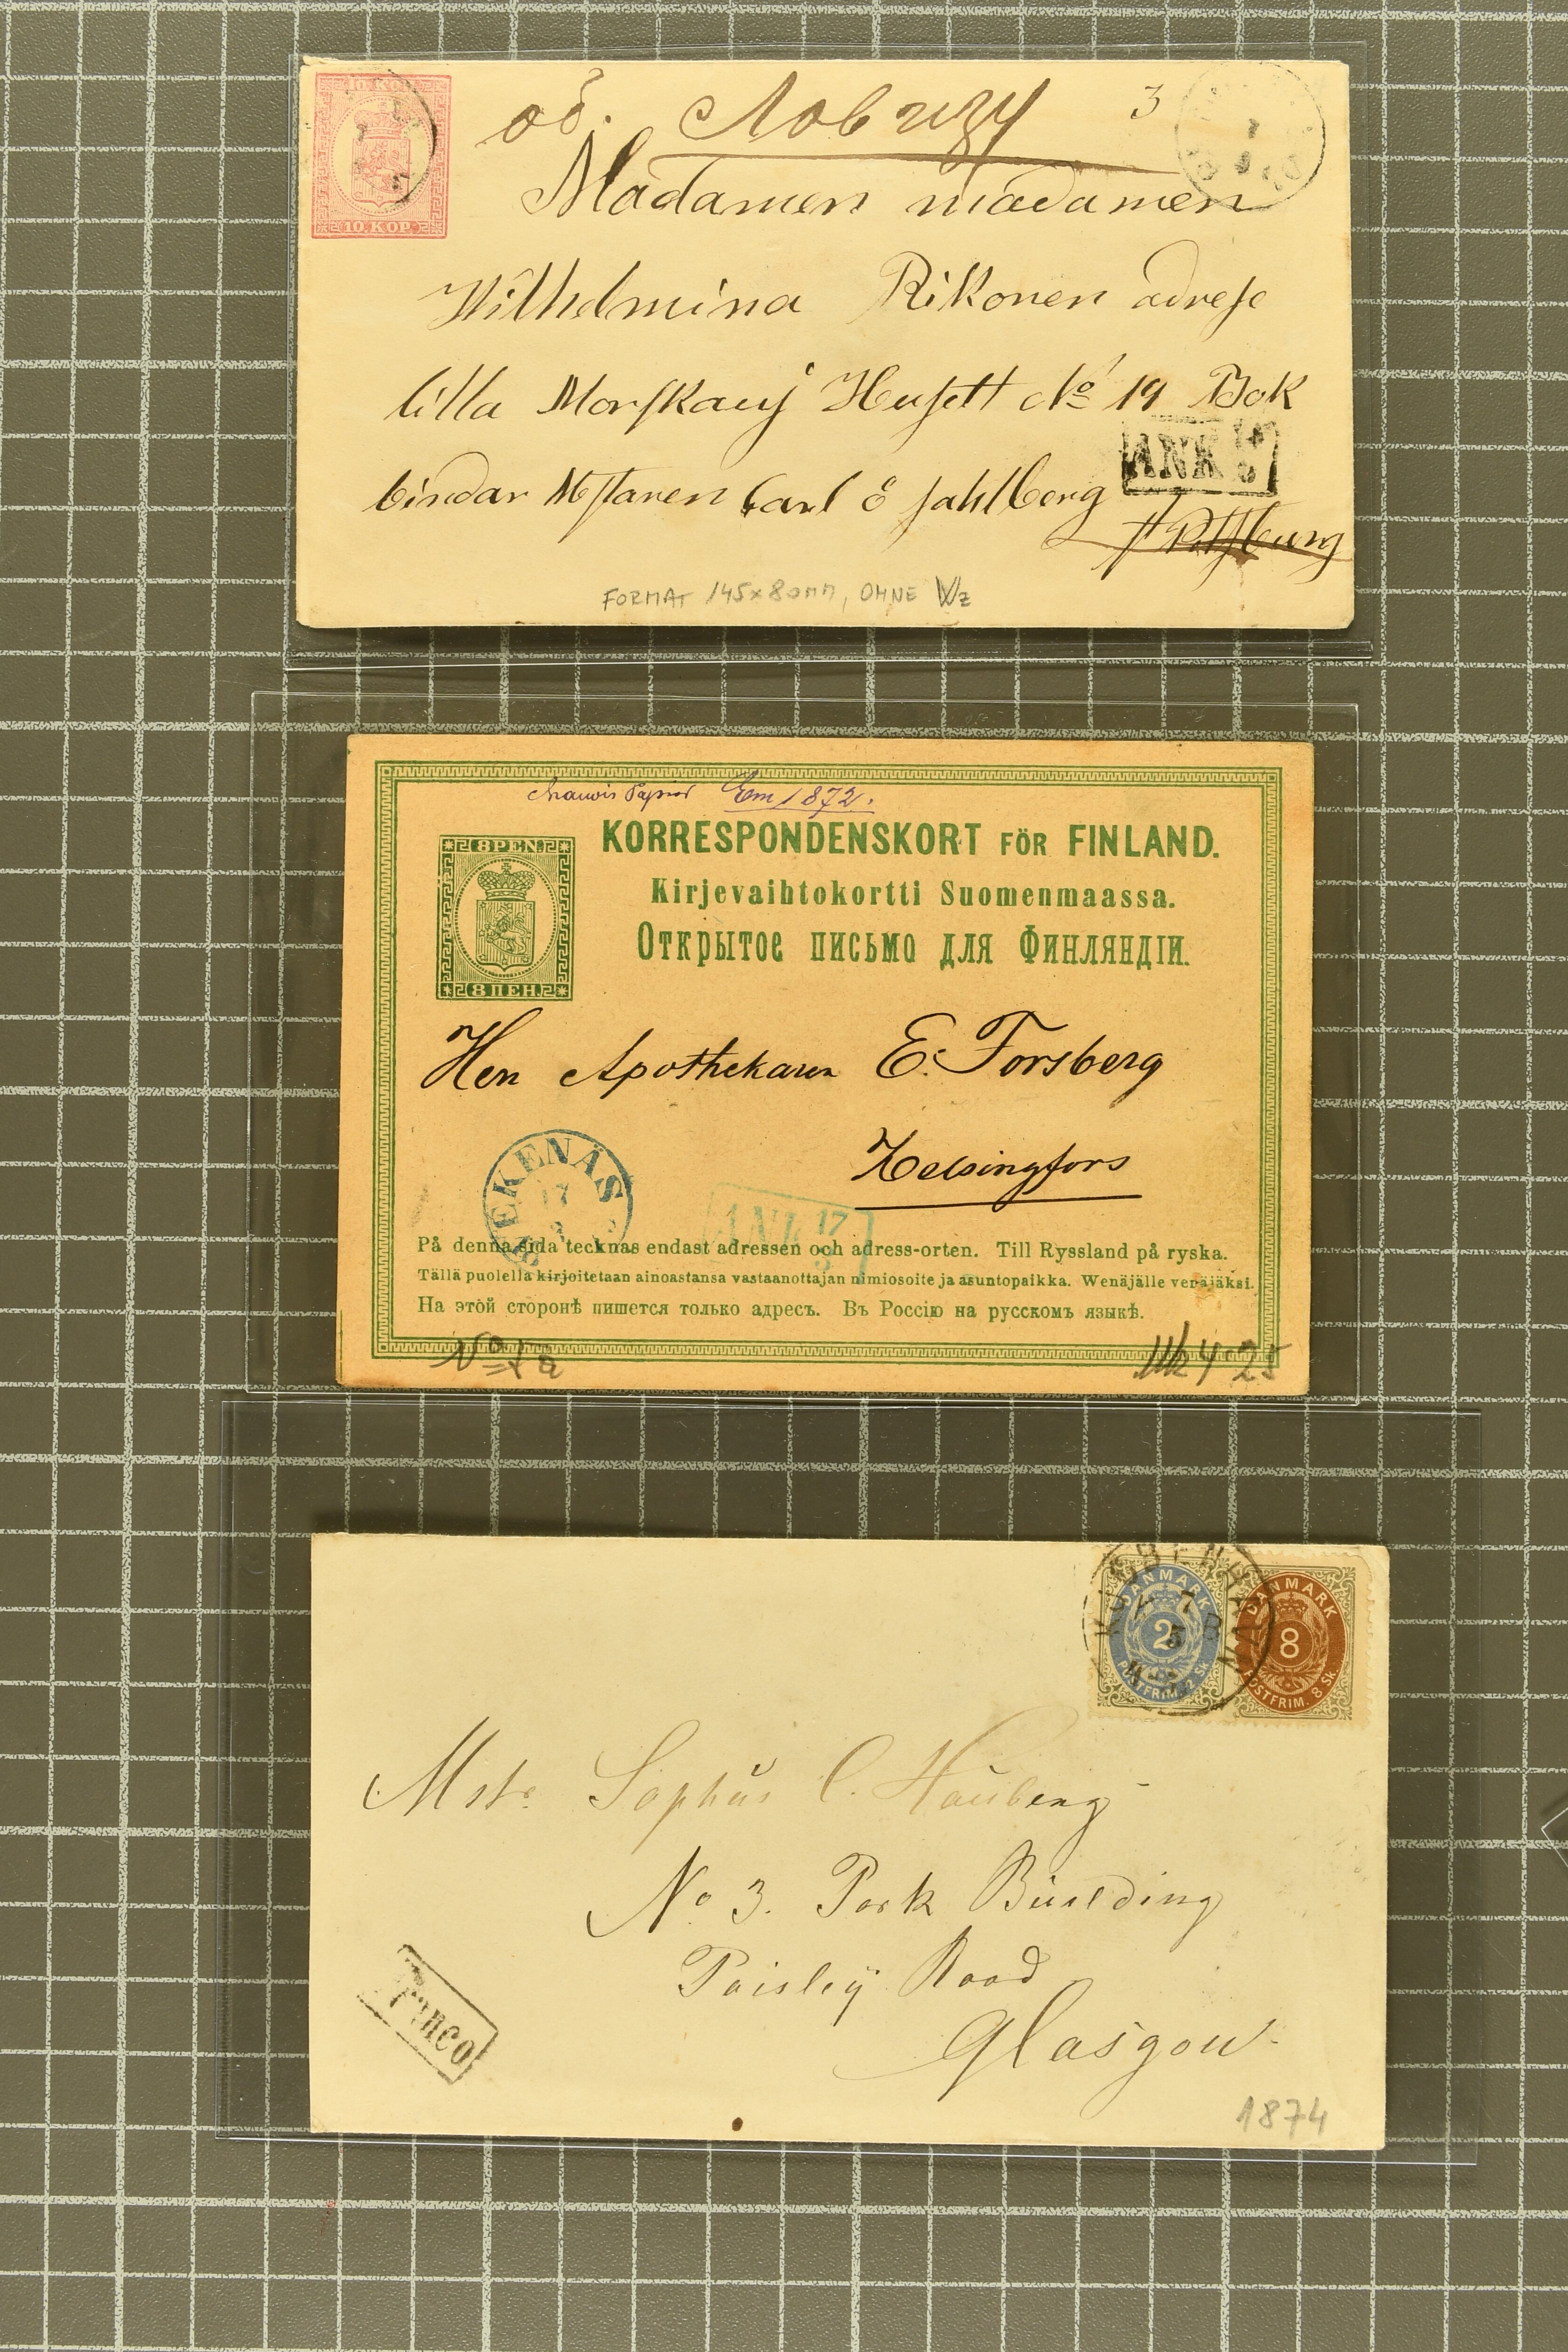 10 KOP.
об. Ловизу 3
Madamen madamen
Wilhelmina Rikonen adrese
lilla Morskauj Husett No 19 Bok
bindar Mstaren Carl ö sahlberg
ANK
St Ptsburg
FORMAT 145x80MM, OHNE Wz
10. KOP.
Em 1872.
8 PEN.
KORRESPONDENSKORT FÖR FINLAND.
Kirjevaihtokortti Suomenmaassa.
Открытое письмо для Финляндіи.
8 ПЕН.
Herr Apothekaren E. Forsberg
Helsingfors
EKENÄS
17
ANK 17
På denna sida tecknas endast adressen och adress-orten. Till Ryssland på ryska.
Tällä puolella kirjoitetaan ainoastansa vastaanottajan nimiosoite ja asuntopaikka. Wenäjälle venäjäksi.
На этой сторонѣ пишется только адресъ. Въ Россію на русскомъ языкѣ.
No 1a
4 25
KJØBENHAVN
7
3
DANMARK
2
POSTFRIM. 2 Sk.
DANMARK
8
POSTFRIM. 8 Sk.
Mstr. Sophus C. Hauberg
No 3. Park Buulding
Paisley Road
Glasgow
Franco
1874